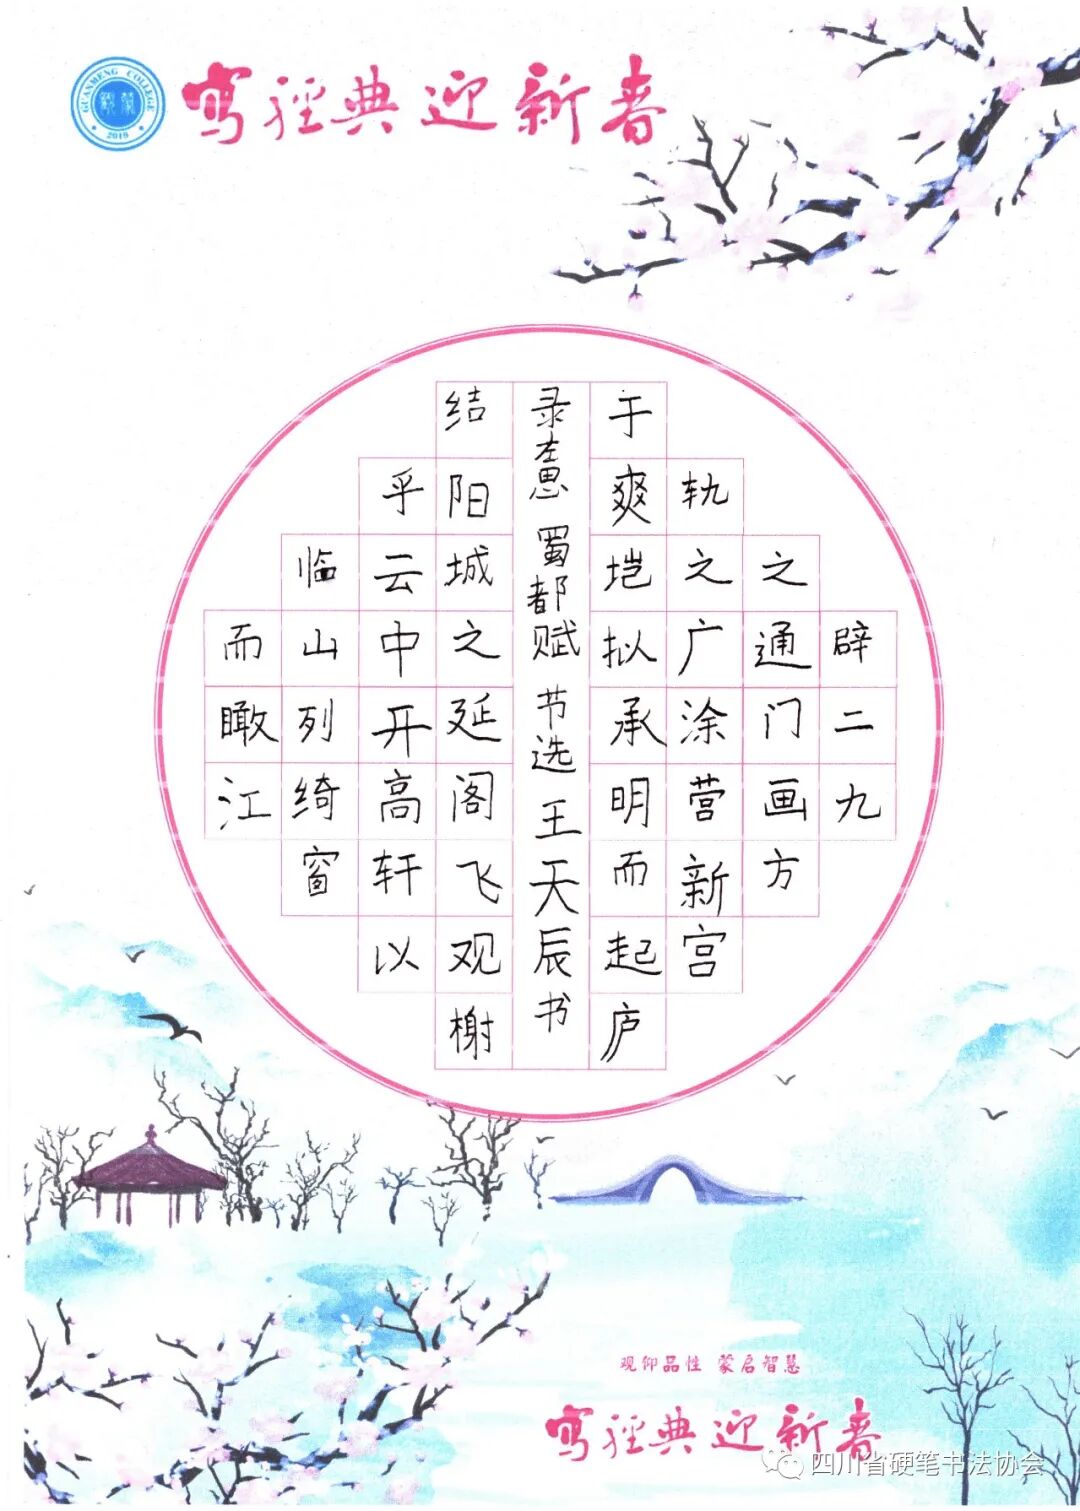 GUANMENG COLLEGE
寫經典迎新春
辟二九
之通门画方
轨之广涂营新宫
于爽垲拟承明而起庐
录左思 蜀都赋 节选 王天辰书
结阳城之延阁飞观榭
乎云中开高轩以
临山列绮窗
而瞰江
观仰品性 蒙启智慧
寫經典迎新春
四川省硬笔书法协会